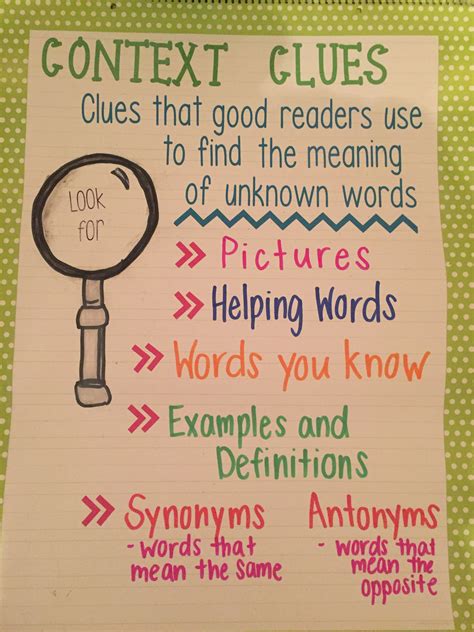 CONTEXT CLUES
Clues that good readers use
to find the meaning
of unknown words
LOOK
for
>> Pictures
>> Helping Words
>> Words you know
>> Examples and
Definitions
>> Synonyms Antonyms
- words that - words that
mean the same mean the
opposite